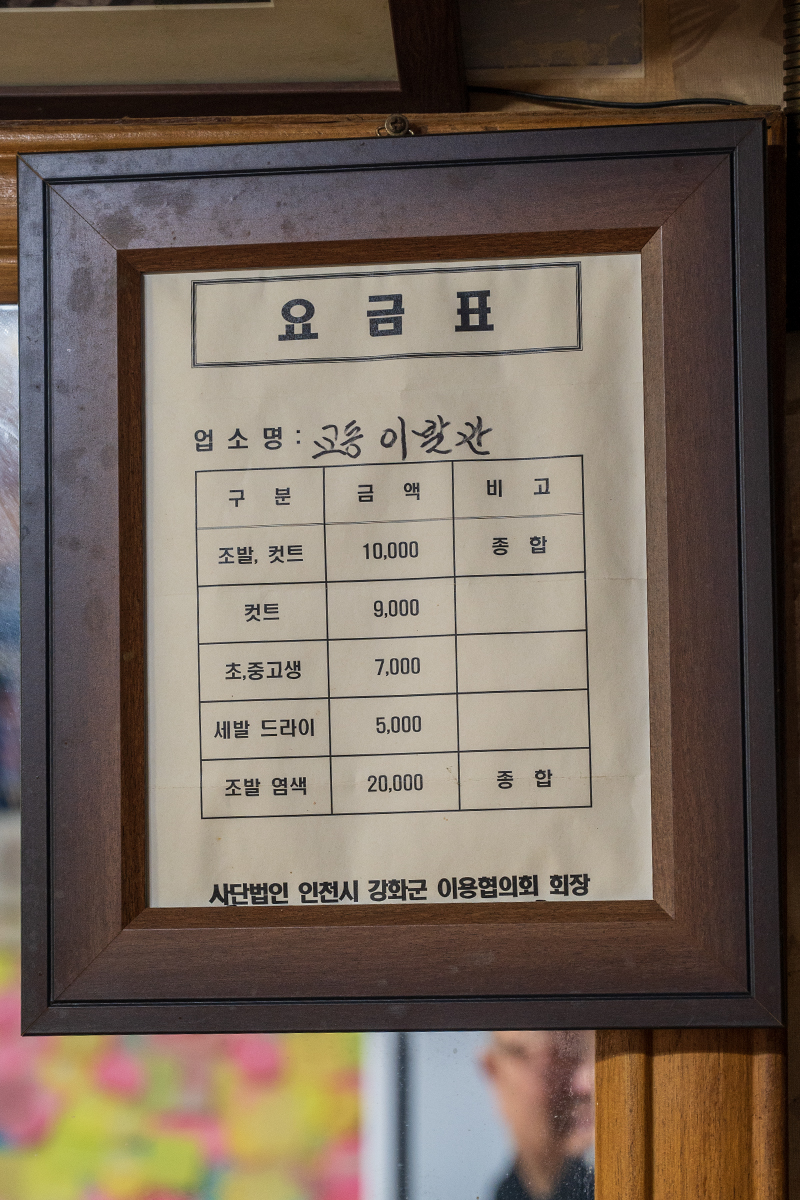 요 금 표
업 소 명 : 교동 이발관
구 분 금 액 비 고
조발, 컷트 10,000 종 합
컷트 9,000
초,중고생 7,000
세발 드라이 5,000
조발 염색 20,000 종 합
사단법인 인천시 강화군 이용협의회 회장